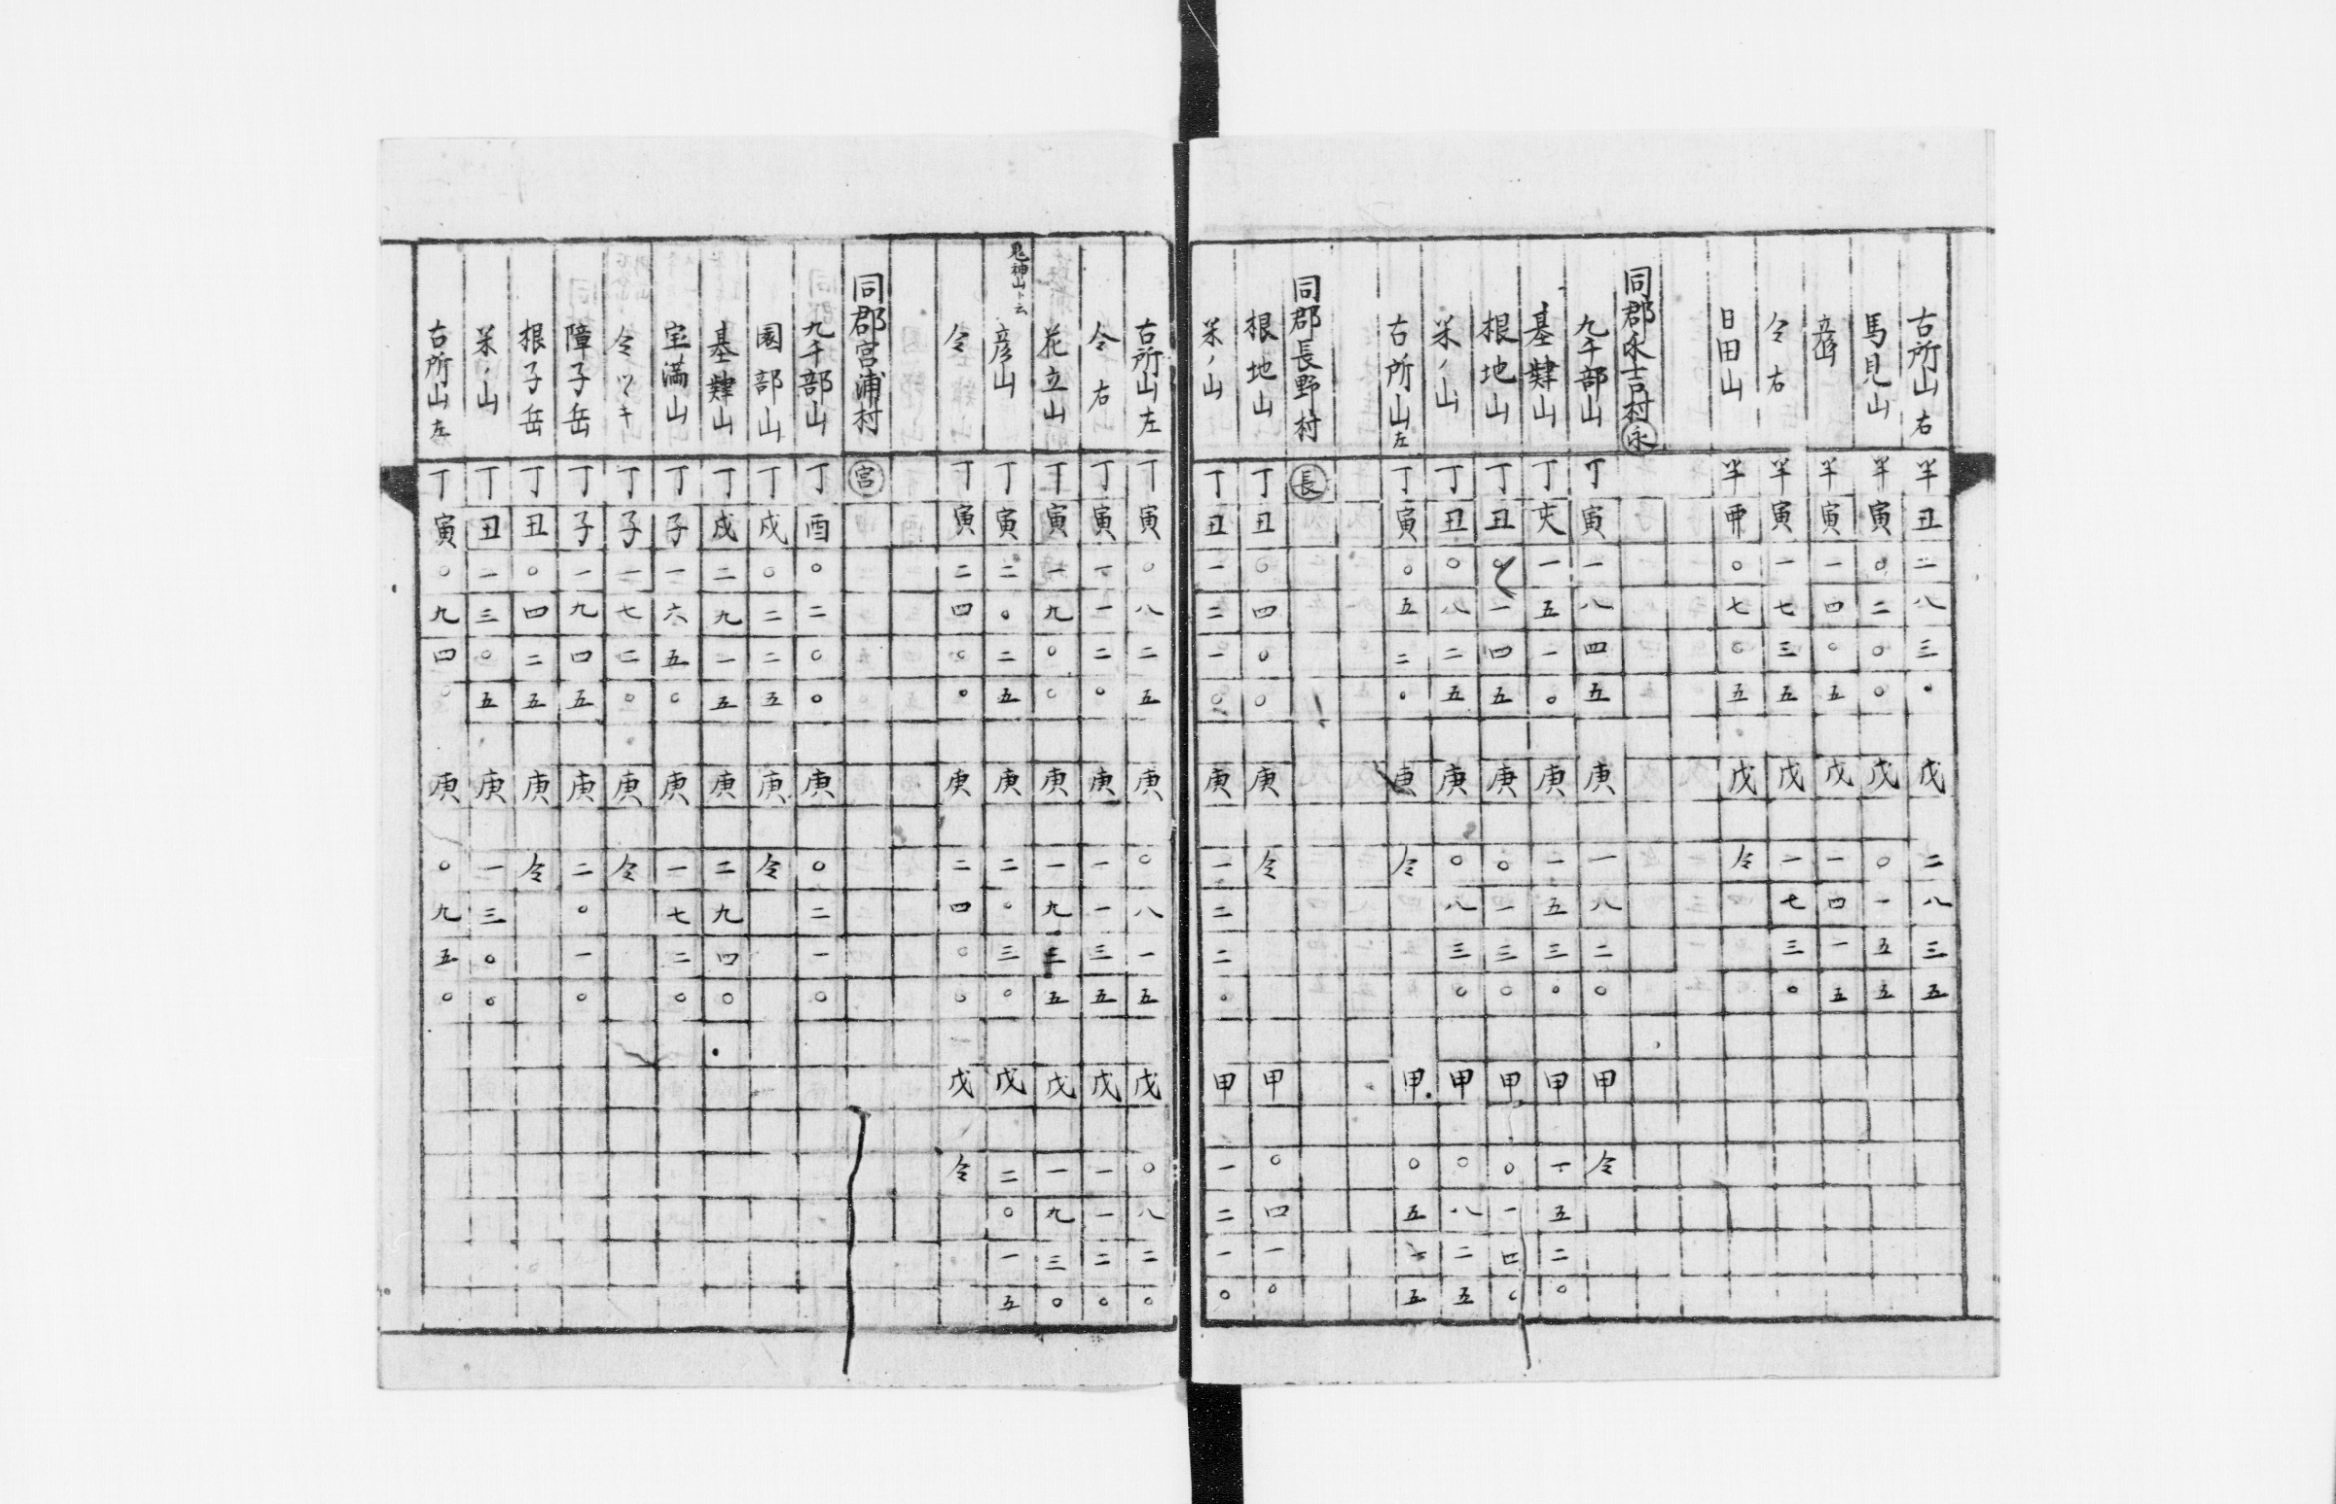 古所山右 半丑二八三〇 戊二八三五
馬見山 半寅〇二〇〇 戊〇一五五
彦山 半寅一四〇五 戊一四一五
仝右 半寅一七三五 戊一七三〇
日田山 半申〇七〇五 戊仝
同郡永吉村 永
九千部山 丁寅一八四五 庚一八二〇 甲仝
基肄山 丁亥一五一〇 庚一五三〇 甲一五二〇
根地山 丁丑〇一四五 庚〇一三〇 甲〇一四〇
米ノ山 丁丑〇八二五 庚〇八三〇 甲〇八二五
古所山左 丁寅〇五二〇 庚仝 甲〇五一五
同郡長野村 長
根地山 丁丑〇四〇〇 庚仝 甲〇四一〇
米ノ山 丁丑一二一〇 庚一二二〇 甲一二一〇
古所山左 丁寅〇八二五 庚〇八一五 戊〇八二〇
仝右 丁寅一一二〇 庚一一三五 戊一一二〇
花立山 丁寅一九〇〇 庚一九三五 戊一九三〇
鬼神山ト云
彦山 丁寅二〇二五 庚二〇三〇 戊二〇一五
仝 丁寅二四〇〇 庚二四〇〇 戊仝
同郡宮浦村 宮
九千部山 丁酉〇二〇〇 庚〇二一〇
園部山 丁戌〇二二五 庚仝
基肄山 丁戌二九一五 庚二九四〇
宝満山 丁子一六五〇 庚一七二〇
仝ツヾキ 丁子一七二〇 庚仝
障子岳 丁子一九四五 庚二〇一〇
根子岳 丁丑〇四二五 庚仝
米ノ山 丁丑一三〇五 庚一三〇〇
古所山左 丁寅〇九四〇 庚〇九五〇